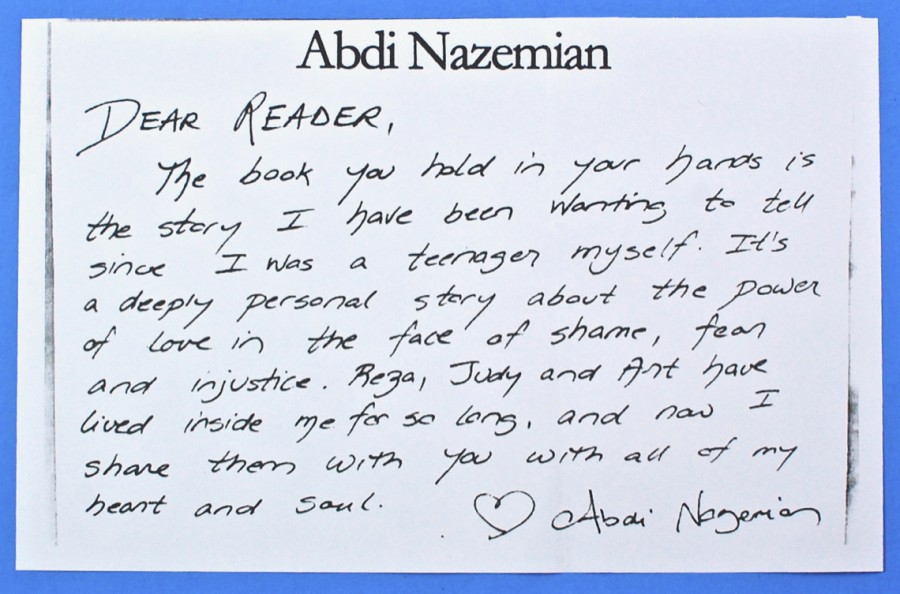 Abdi Nazemian
DEAR READER,
The book you hold in your hands is
the story I have been wanting to tell
since I was a teenager myself. It's
a deeply personal story about the power
of love in the face of shame, fear
and injustice. Reza, Judy and Art have
lived inside me for so long, and now I
share them with you with all of my
heart and soul.
♡ Abdi Nazemian